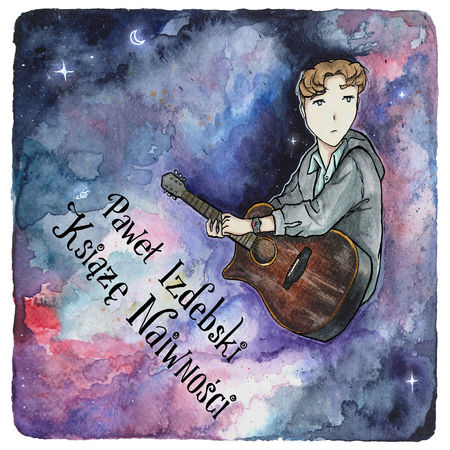 Paweł Izdebski
Książę Naiwności